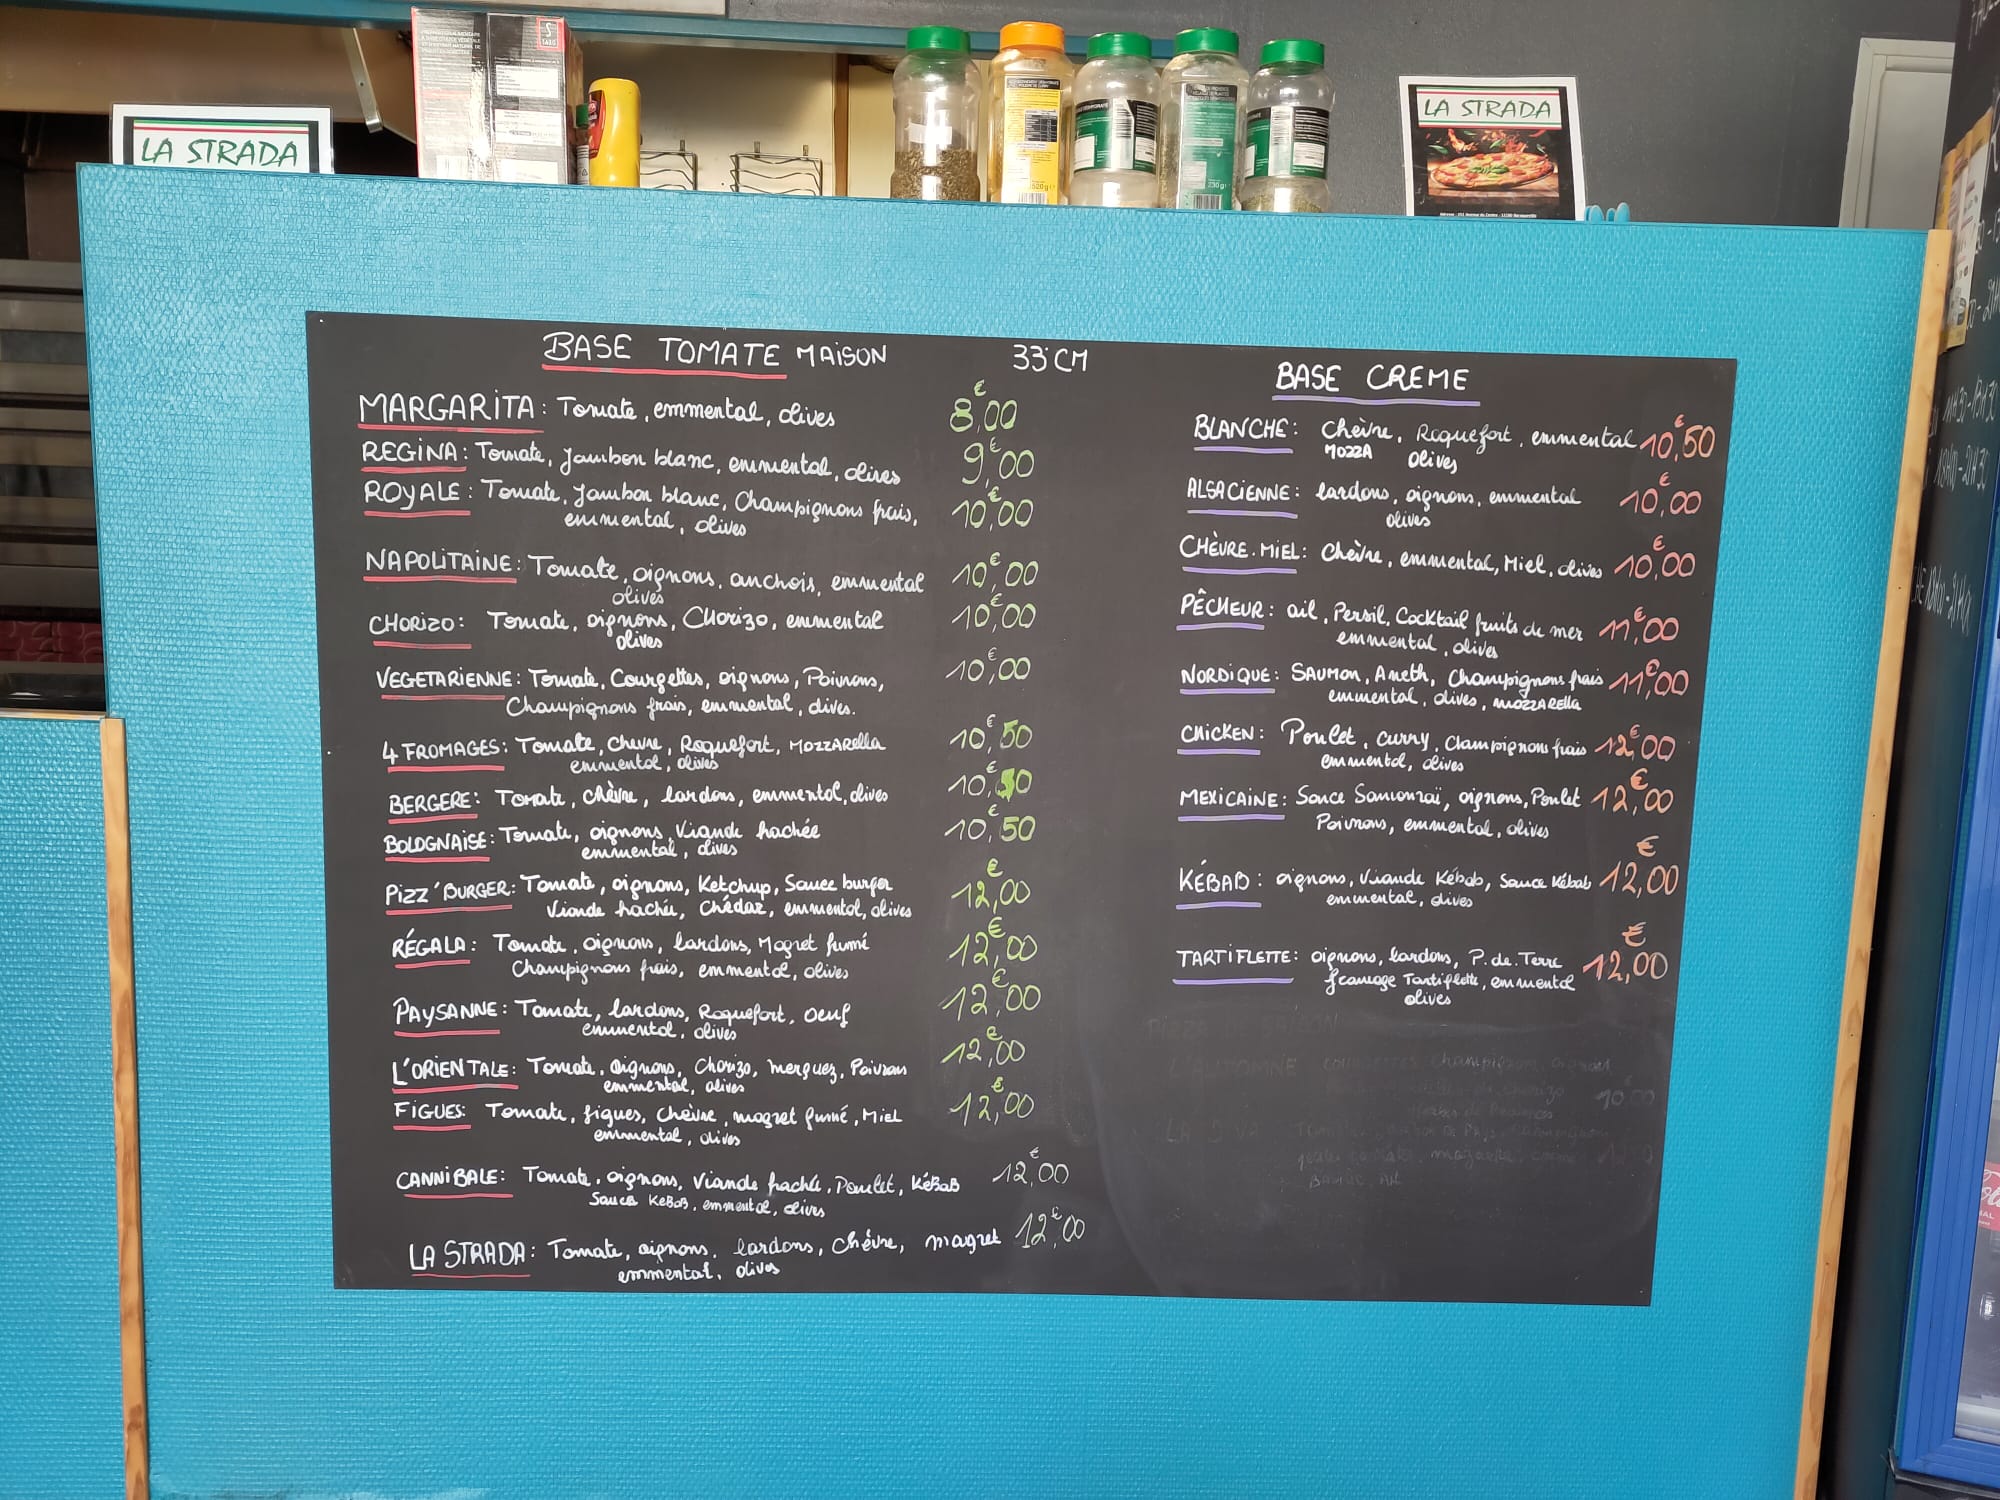 LA STRADA
LA STRADA
BASE TOMATE MAISON 33 CM
MARGARITA : Tomate, emmental, olives 8,00 €
REGINA : Tomate, Jambon blanc, emmental, olives 9,00 €
ROYALE : Tomate, Jambon blanc, Champignons frais, 10,00 €
emmental, olives
NAPOLITAINE : Tomate, oignons, anchois, emmental 10,00 €
olives
CHORIZO : Tomate, oignons, Chorizo, emmental 10,00 €
olives
VEGETARIENNE : Tomate, Courgettes, oignons, Poivrons, 10,00 €
Champignons frais, emmental, olives.
4 FROMAGES : Tomate, Chevre, Roquefort, MOZZARella 10,50 €
emmental, olives
BERGERE : Tomate, chèvre, lardons, emmental, olives 10,50 €
BOLOGNAISE : Tomate, oignons, Viande hachée 10,50 €
emmental, olives
PIZZ'BURGER : Tomate, oignons, Ketchup, Sauce burger 12,00 €
Viande hachée, Chédar, emmental, olives
RÉGALA : Tomate, oignons, lardons, Magret fumé 12,00 €
Champignons frais, emmental, olives
PAYSANNE : Tomate, lardons, Roquefort, oeuf 12,00 €
emmental, olives
L'ORIENTALE : Tomate, Oignons, Chorizo, merguez, Poivrons 12,00 €
emmental, olives
FIGUES : Tomate, figues, Chèvre, magret fumé, Miel 12,00 €
emmental, olives
CANNIBALE : Tomate, oignons, Viande haché, Poulet, Kébab 12,00 €
Sauce Kebab, emmental, olives
LA STRADA : Tomate, oignons, lardons, Chèvre, magret 12,00 €
emmental, olives
BASE CREME
BLANCHE : Chèvre, Roquefort, emmental 10,50 €
MOZZA olives
ALSACIENNE : lardons, oignons, emmental 10,00 €
olives
CHÈVRE.MIEL : Chèvre, emmental, Miel, olives 10,00 €
PÊCHEUR : ail, Persil, Cocktail fruits de mer 11,00 €
emmental, olives
NORDIQUE : SAUMON, Aneth, Champignons frais 11,00 €
emmental, olives, mozzARella
CHICKEN : Poulet, curry, Champignons frais 12,00 €
emmental, olives
MEXICAINE : Sauce Samouraï, oignons, Poulet 12,00 €
Poivrons, emmental, olives
KÉBAB : oignons, Viande Kébab, Sauce Kébab 12,00 €
emmental, olives
TARTIFLETTE : oignons, lardons, P. de. Terre 12,00 €
fromage Tartiflette, emmental
olives